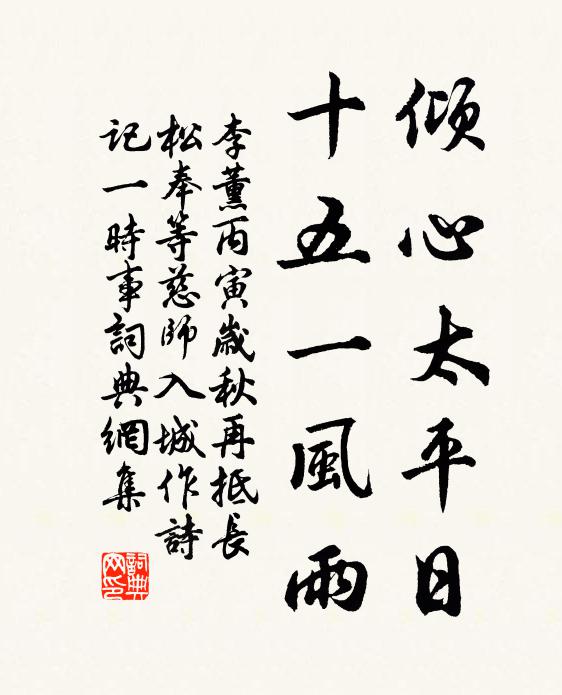 傾心太平日
十五一風雨
李薰丙寅歲秋再抵長
松奉等慈師入城作詩
記一時事詞典網集
詞典
网印